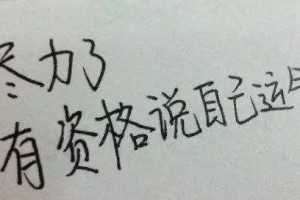 尽力了
有资格说自己运